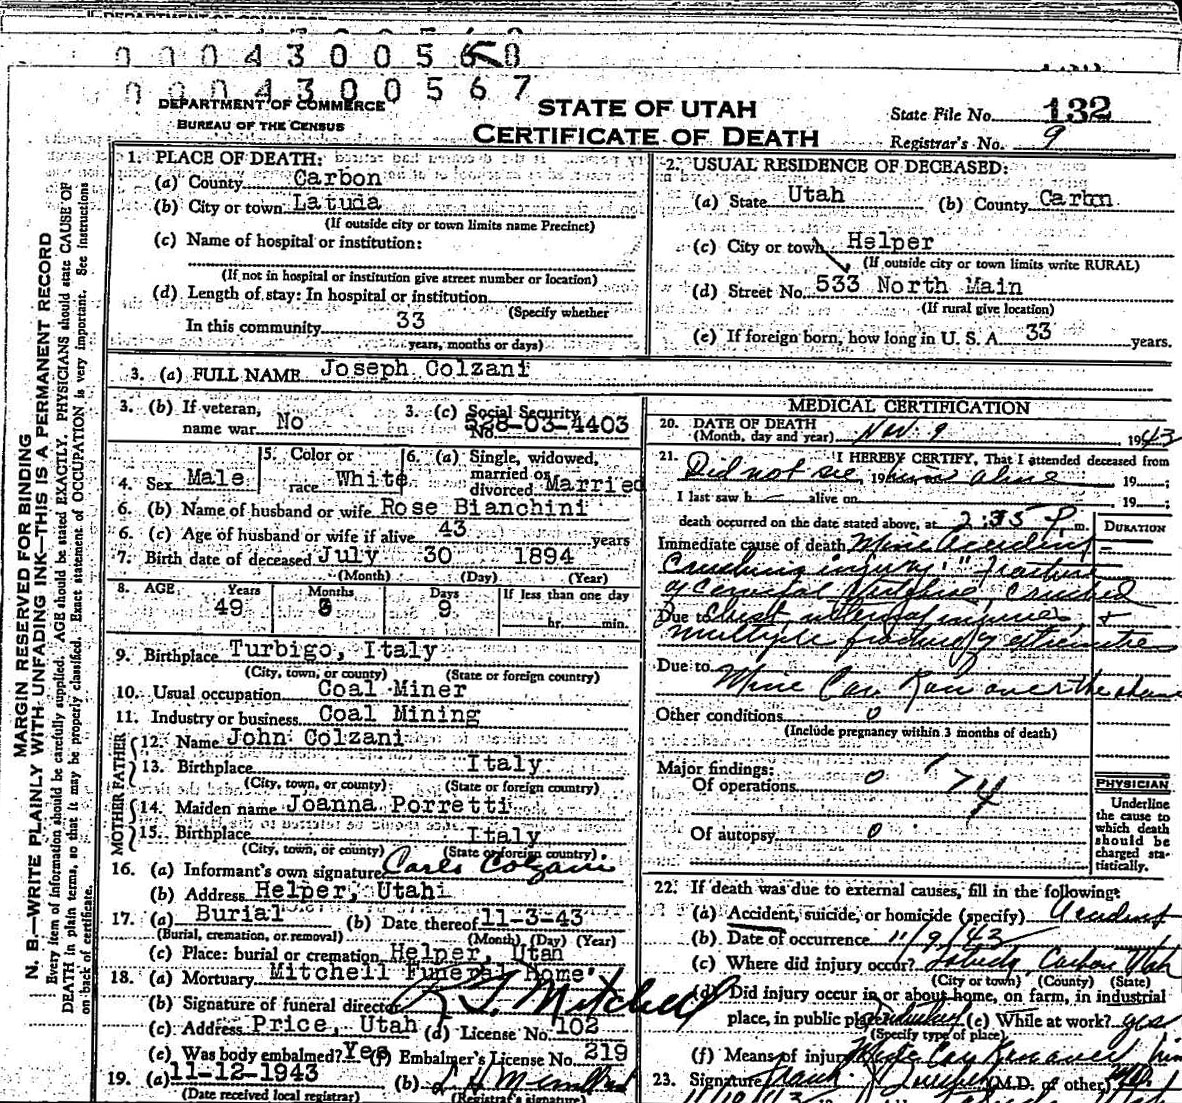 DEPARTMENT OF COMMERCE
0 0 0 4 3 0 0 5 6 8
0 0 0 4 3 0 0 5 6 7
DEPARTMENT OF COMMERCE
BUREAU OF THE CENSUS
STATE OF UTAH
CERTIFICATE OF DEATH
State File No. 132
Registrar's No. 9
MARGIN RESERVED FOR BINDING
N. B.—WRITE PLAINLY WITH UNFADING INK—THIS IS A PERMANENT RECORD
Every item of information should be carefully supplied. AGE should be stated EXACTLY. PHYSICIANS should state CAUSE OF
DEATH in plain terms, so that it may be properly classified. Exact statement of OCCUPATION is very important. See instructions
on back of certificate.
1. PLACE OF DEATH:
(a) County Carbon
(b) City or town Latuda
(If outside city or town limits name Precinct)
(c) Name of hospital or institution:
(If not in hospital or institution give street number or location)
(d) Length of stay: In hospital or institution
(Specify whether
In this community 33
years, months or days)
2. USUAL RESIDENCE OF DECEASED:
(a) State Utah (b) County Carbn
(c) City or town Helper
(If outside city or town limits write RURAL)
(d) Street No. 533 North Main
(If rural give location)
(e) If foreign born, how long in U. S. A. 33 years.
3. (a) FULL NAME Joseph Colzani
3. (b) If veteran, name war No
3. (c) Social Security No. 528-03-4403
4. Sex Male
5. Color or race White
6. (a) Single, widowed, married or divorced Married
6. (b) Name of husband or wife Rose Bianchini
6. (c) Age of husband or wife if alive 43 years
7. Birth date of deceased July 30 1894
(Month) (Day) (Year)
8. AGE Years Months Days If less than one day
49 3 9 hr. min.
9. Birthplace Turbigo, Italy
(City, town, or county) (State or foreign country)
10. Usual occupation Coal Miner
11. Industry or business Coal Mining
FATHER
12. Name John Colzani
13. Birthplace Italy
(City, town, or county) (State or foreign country)
MOTHER
14. Maiden name Joanna Porretti
15. Birthplace Italy
(City, town, or county) (State or foreign country)
16. (a) Informant's own signature Carlo Colzani
(b) Address Helper, Utah
17. (a) Burial (b) Date thereof 11-3-43
(Burial, cremation, or removal) (Month) (Day) (Year)
(c) Place: burial or cremation Helper, Utah
18. (a) Mortuary Mitchell Funeral Home
(b) Signature of funeral director Mitchell
(c) Address Price, Utah (d) License No. 102
(e) Was body embalmed? Yes (f) Embalmer's License No. 219
19. (a) 11-12-1943 (b)
(Date received local registrar) (Registrar's signature)
MEDICAL CERTIFICATION
20. DATE OF DEATH
(Month, day and year) Nov. 9 1943
21. I HEREBY CERTIFY, That I attended deceased from
Did not see, 19 him alive 19 ;
I last saw h alive on 19 ;
death occurred on the date stated above, at 2:35 P m.
DURATION
Immediate cause of death Mine accident
Crushing injury: fracture
of cervical crushed
Due to chest internal injuries, +
multiple fractures of extremities
Due to
Mine Car Ran over the
Other conditions 0
(Include pregnancy within 3 months of death)
Major findings:
Of operations 0
74
Of autopsy 0
PHYSICIAN
Underline
the cause to
which death
should be
charged sta-
tistically.
22. If death was due to external causes, fill in the following:
(a) Accident, suicide, or homicide (specify) Accident
(b) Date of occurrence 11/9/43
(c) Where did injury occur? Latuda Carbon Utah
(City or town) (County) (State)
(d) Did injury occur in or about home, on farm, in industrial
place, in public place? Industry (e) While at work? yes
(Specify type of place)
(f) Means of injury Mine Car Ran over him
23. Signature Frank (M.D. or other) MD.